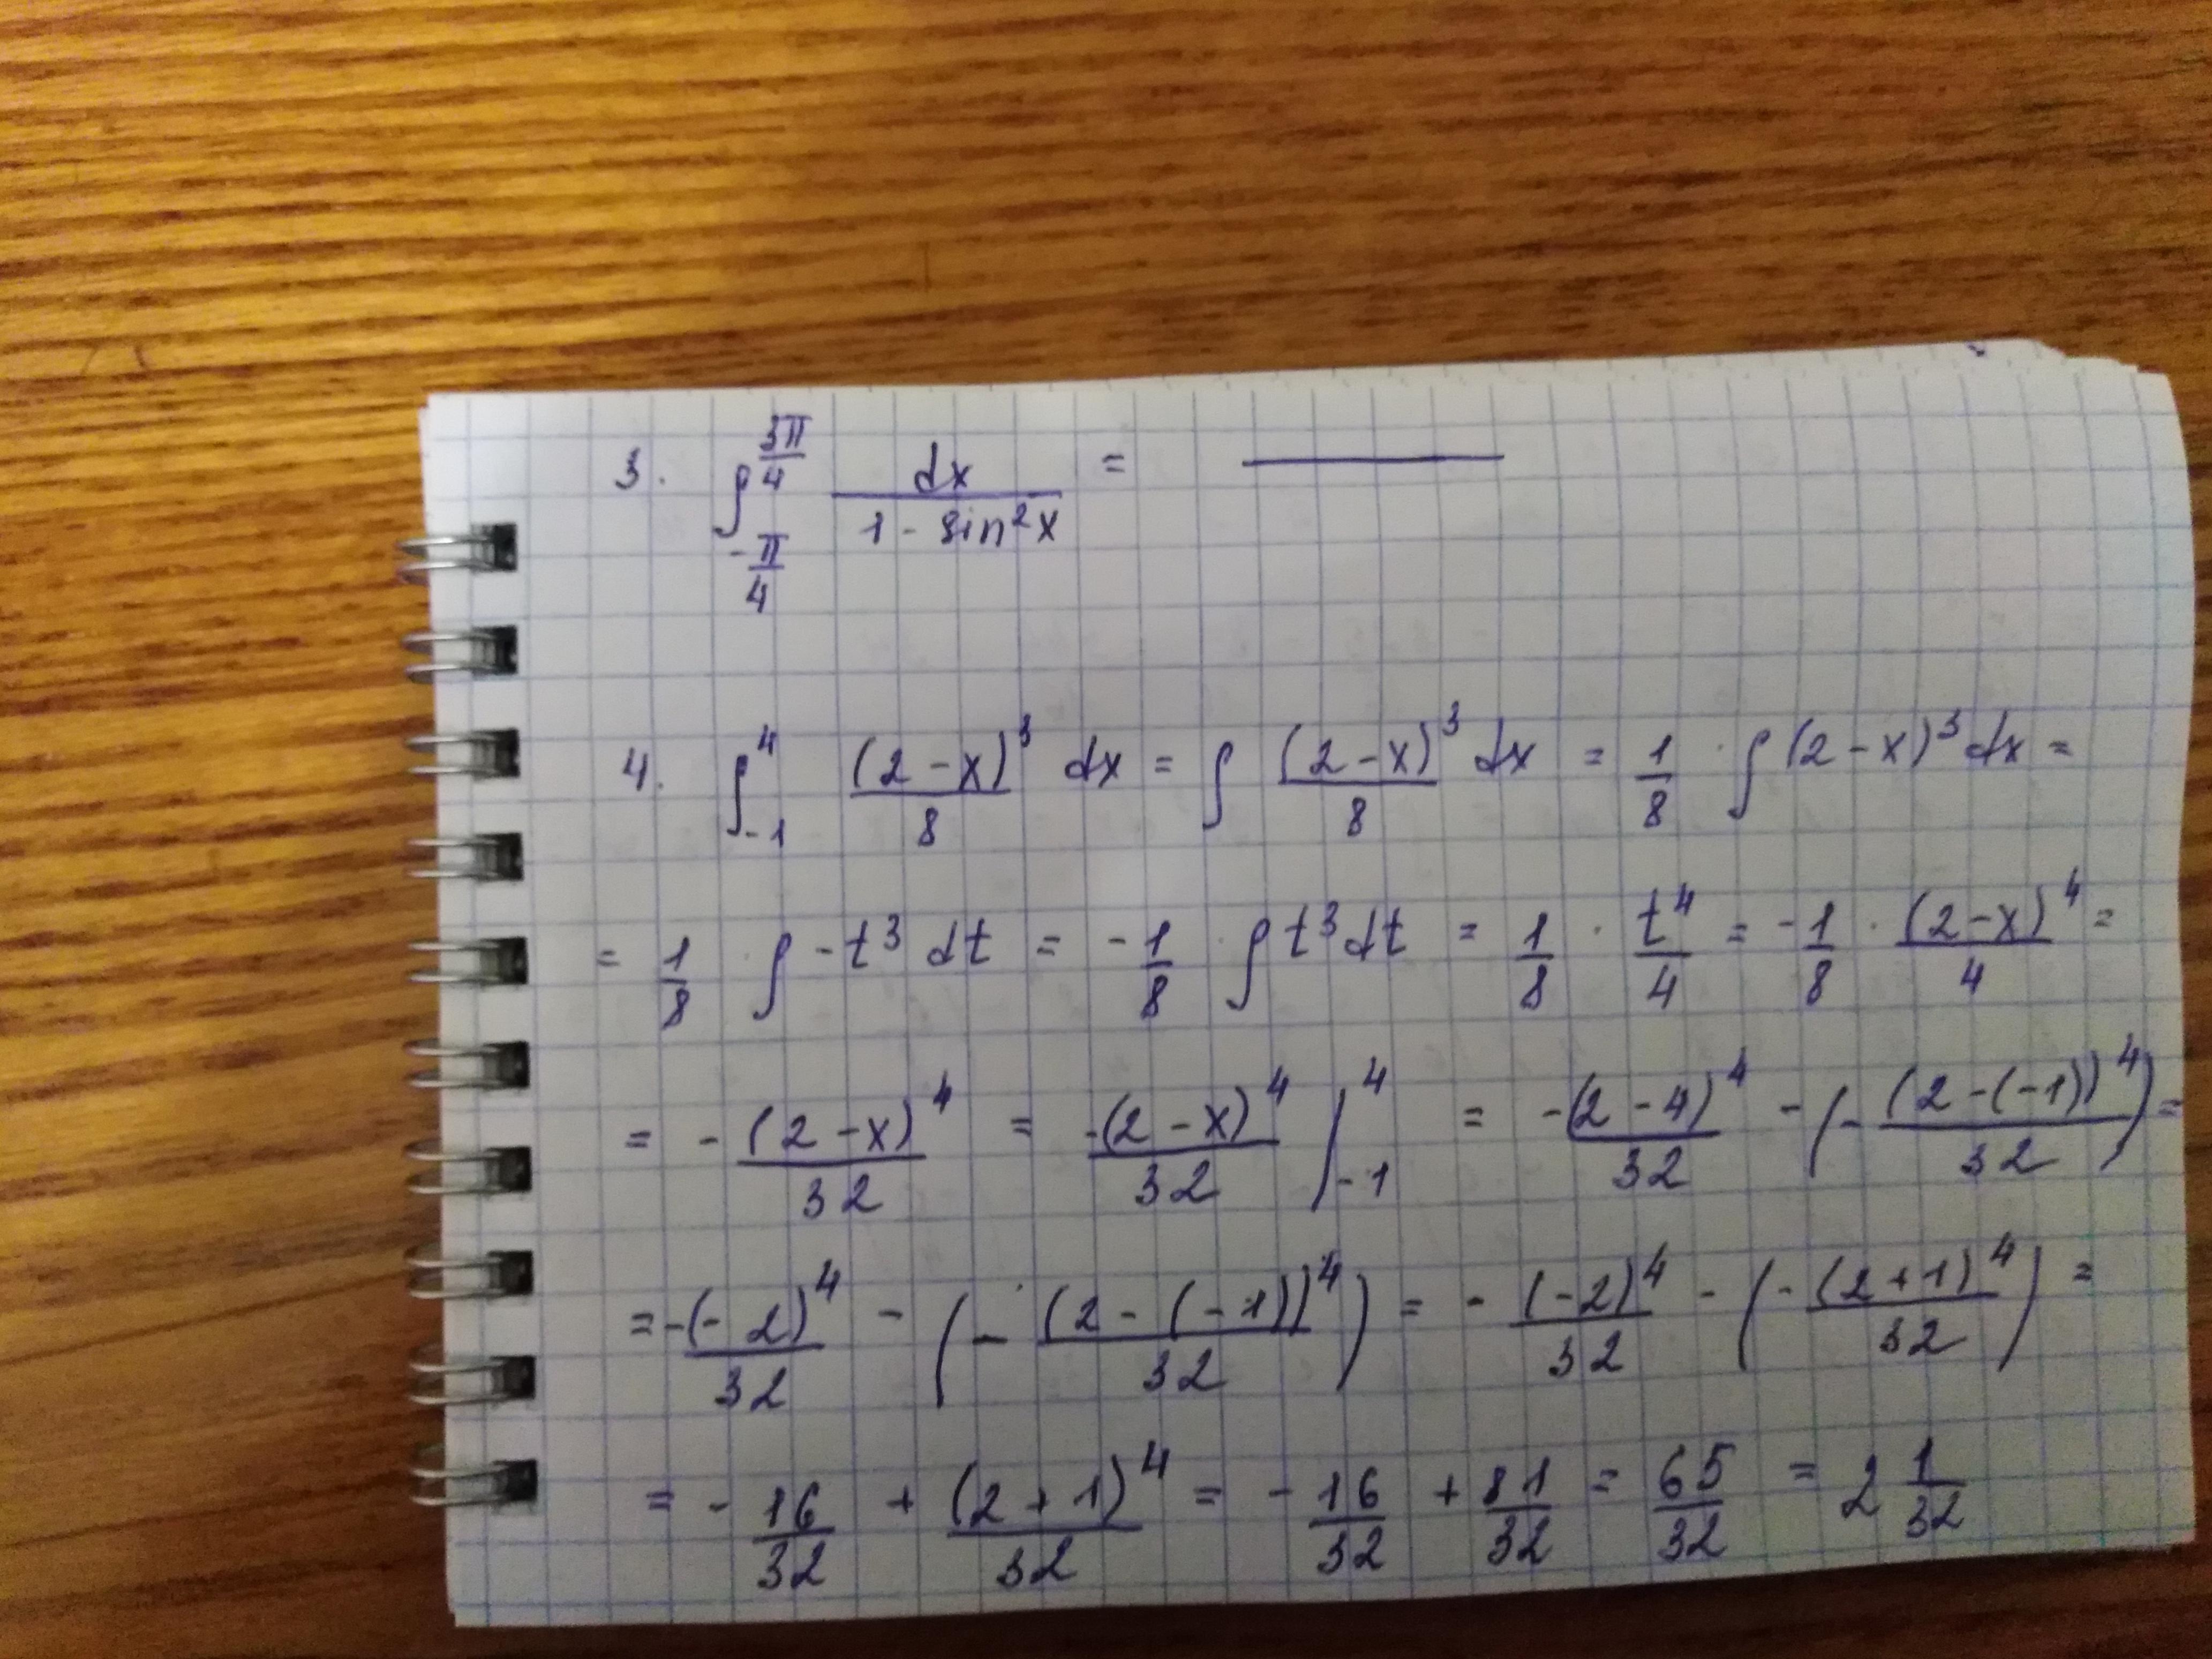 3. ∫_{-π/4}^{3π/4} dx/(1 - sin²x) = ———
4. ∫_{-1}^{4} (2 - x)³/8 dx = ∫ (2 - x)³/8 dx = 1/8 · ∫ (2 - x)³ dx =
= 1/8 · ∫ -t³ dt = -1/8 · ∫ t³ dt = 1/8 · t⁴/4 = -1/8 · (2 - x)⁴/4 =
= - (2 - x)⁴/32 = -(2 - x)⁴/32 |_{-1}^{4} = -(2 - 4)⁴/32 - (- (2 - (-1))⁴/32) =
= -(-2)⁴/32 - (- (2 - (-1))⁴/32) = - (-2)⁴/32 - (- (2 + 1)⁴/32) =
= - 16/32 + (2 + 1)⁴/32 = - 16/32 + 81/32 = 65/32 = 2 1/32